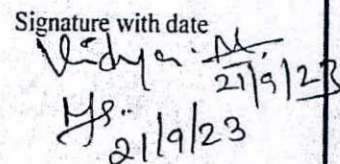 Signature with date
Vidya. M
21/9/23
21/9/23